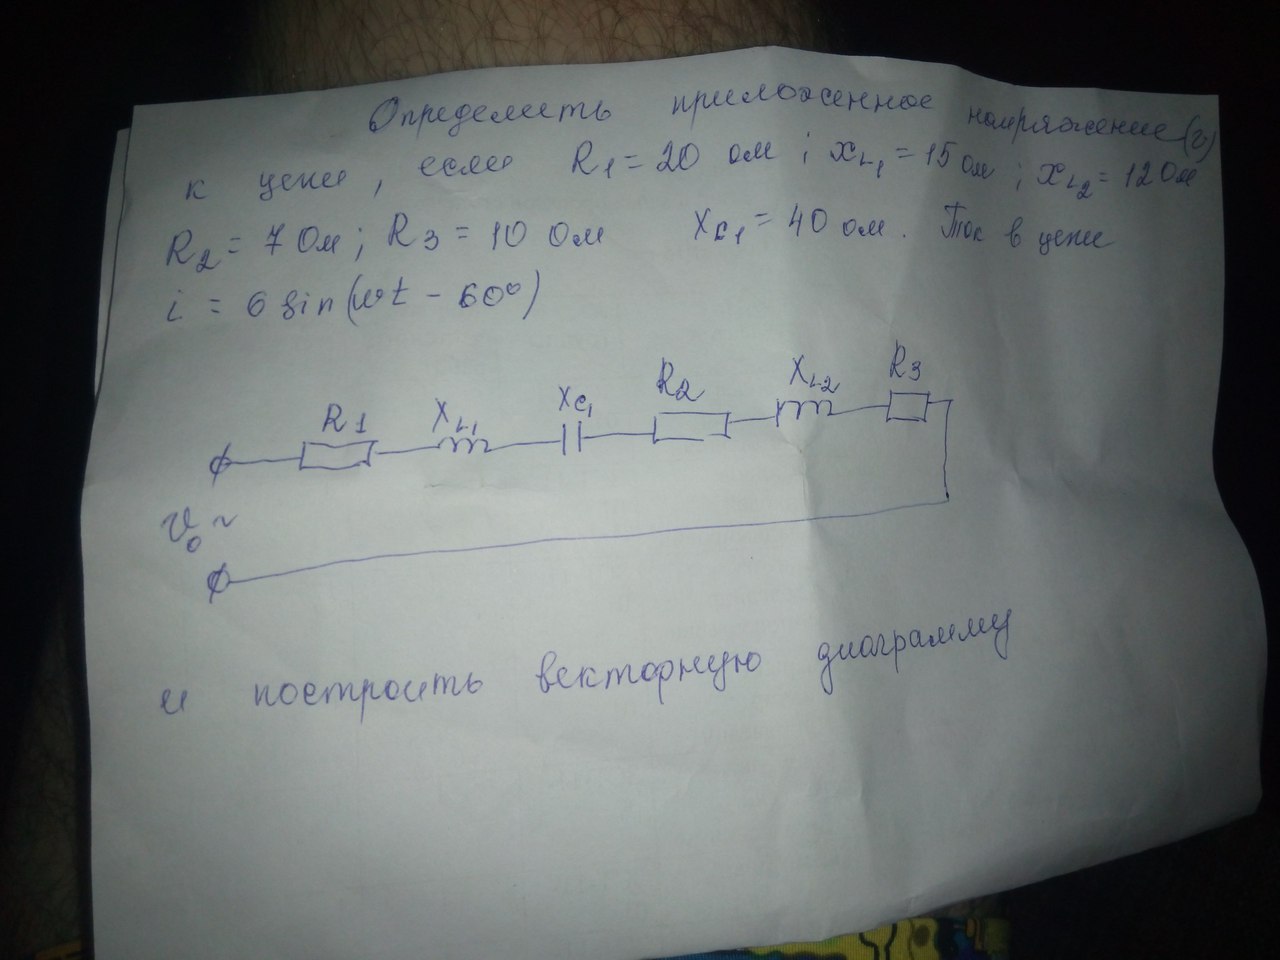 Определить приложенное напряжение(v)
к цепи, если R1 = 20 ом ; xL1 = 15 ом ; xL2 = 12 Ом
R2 = 7 Ом ; R3 = 10 Ом Xc1 = 40 ом. Ток в цепи
i = 6 sin(wt - 60°)
R1 XL1 Xc1 R2 XL2 R3
V0 ~
и построить векторную диаграмму